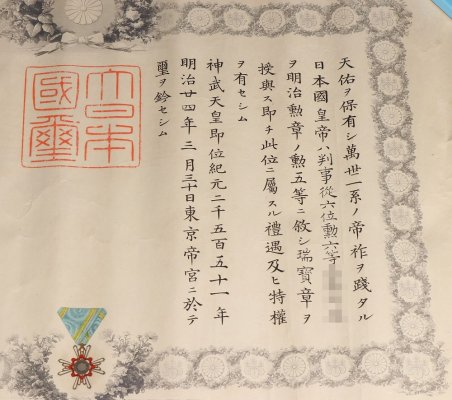 天佑ヲ保有シ萬世一系ノ帝祚ヲ踐タル
日本國皇帝ハ判事從六位勲六等
ヲ明治勲章ノ勲五等ニ敘シ瑞寶章ヲ
授與ス即チ此位ニ屬スル禮遇及ヒ特權
ヲ有セシム
神武天皇即位紀元二千五百五十一年
明治廿四年三月三十日東京帝宮ニ於テ
璽ヲ鈐セシム
大日本
國璽